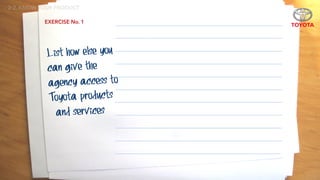 2-2. KNOW YOUR PRODUCT
EXERCISE No. 1
TOYOTA
List how else you
can give the
agency access to
Toyota products
and services